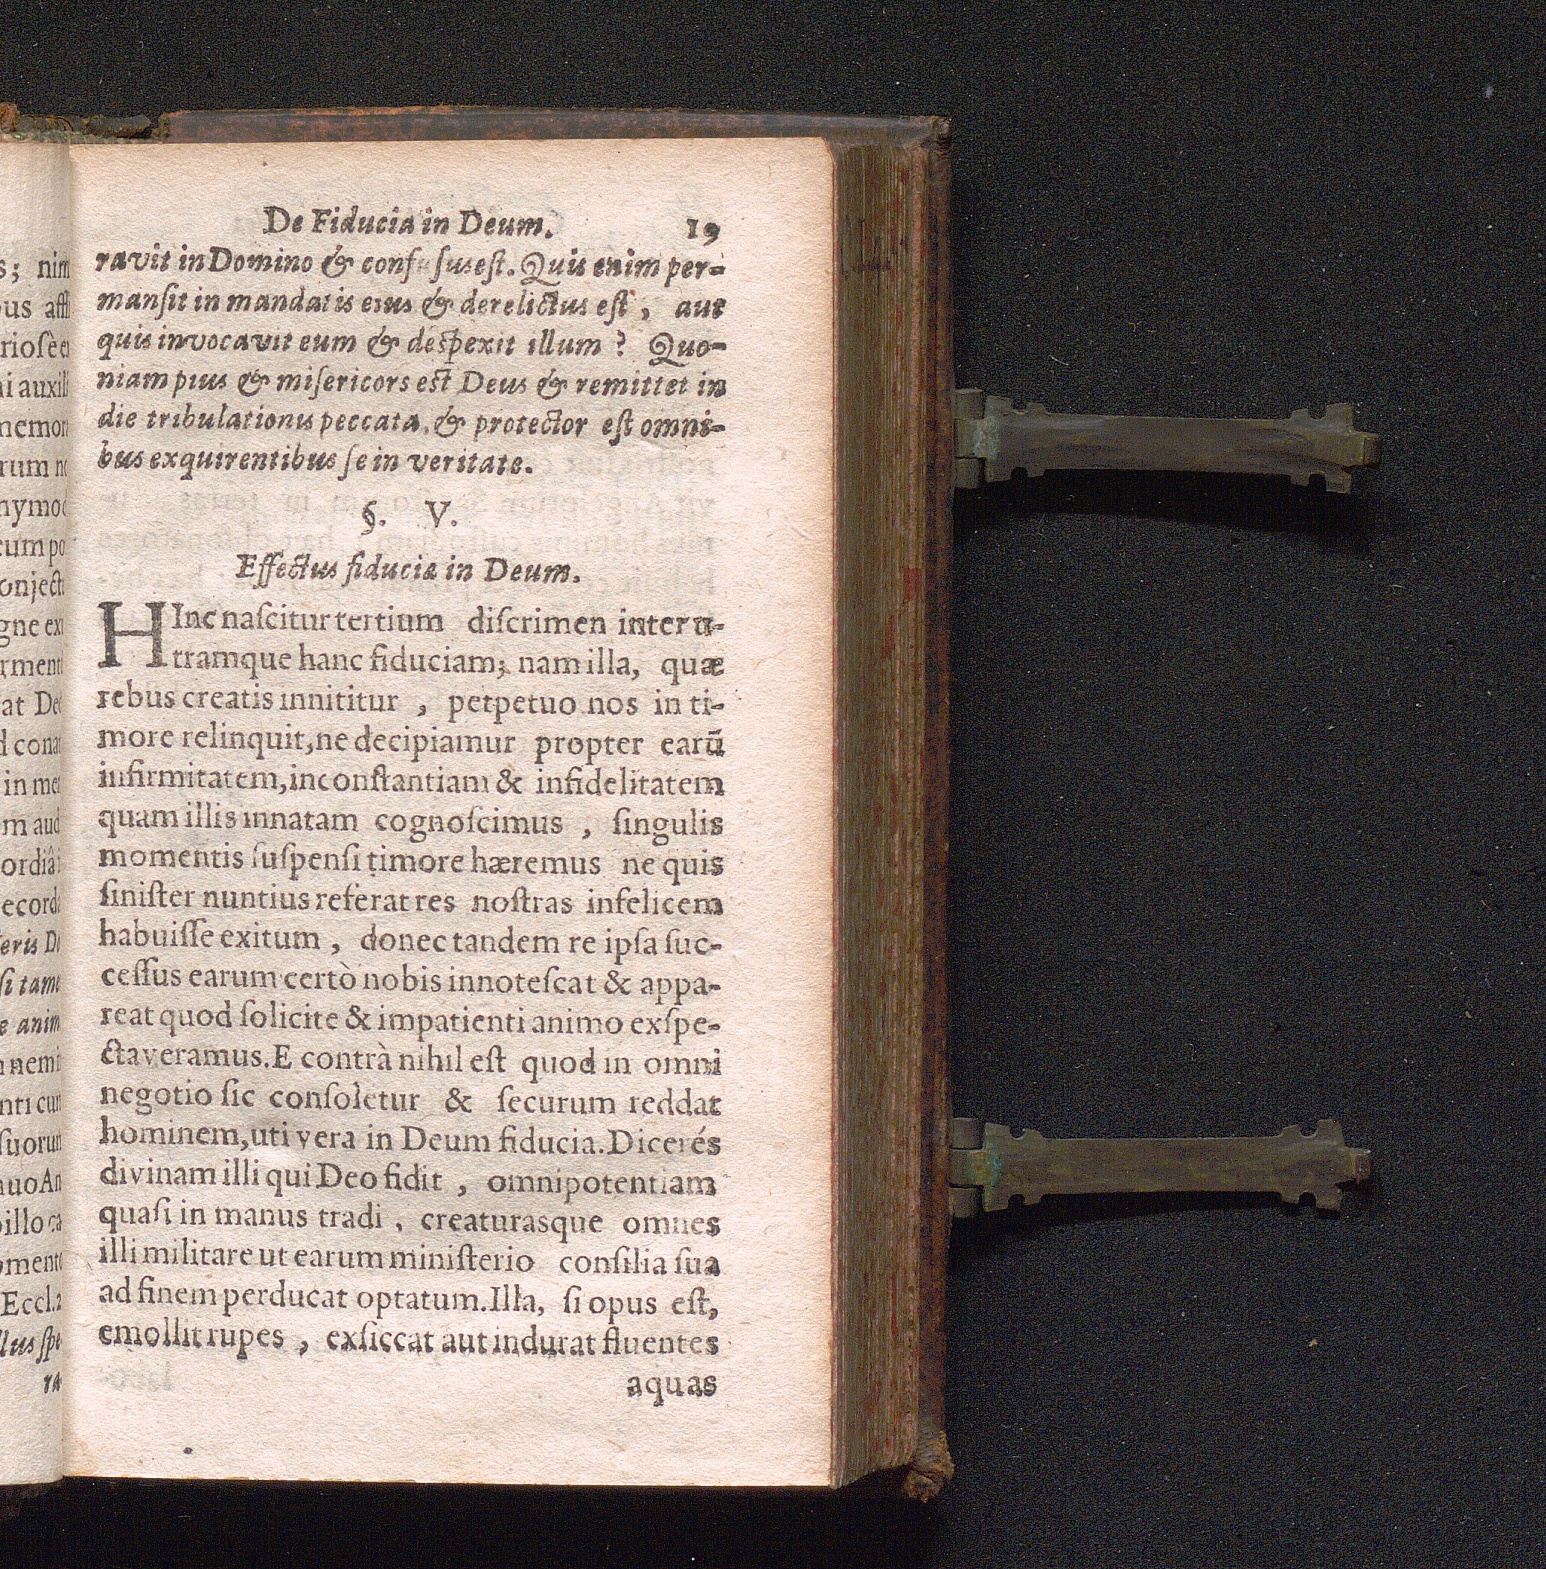 De Fiducia in Deum. 19
ravit in Domino & confusus est. Quis enim per-
mansit in mandatis ejus & derelictus est, aut
quis invocavit eum & despexit illum? Quo-
niam pius & misericors est Deus & remittet in
die tribulationis peccata, & protector est omni-
bus exquirentibus se in veritate.
§. V.
Effectus fiduciæ in Deum.
HInc nascitur tertium discrimen inter u-
tramque hanc fiduciam; nam illa, quæ
rebus creatis innititur, perpetuo nos in ti-
more relinquit, ne decipiamur propter earū
infirmitatem, inconstantiam & infidelitatem
quam illis innatam cognoscimus, singulis
momentis suspensi timore hæremus ne quis
sinister nuntius referat res nostras infelicem
habuisse exitum, donec tandem re ipsa suc-
cessus earum certò nobis innotescat & appa-
reat quod solicite & impatienti animo exspe-
ctaveramus. E contrà nihil est quod in omni
negotio sic consoletur & securum reddat
hominem, uti vera in Deum fiducia. Dicerés
divinam illi qui Deo fidit, omnipotentiam
quasi in manus tradi, creaturasque omnes
illi militare ut earum ministerio consilia sua
ad finem perducat optatum. Illa, si opus est,
emollit rupes, exsiccat aut indurat fluentes
aquas